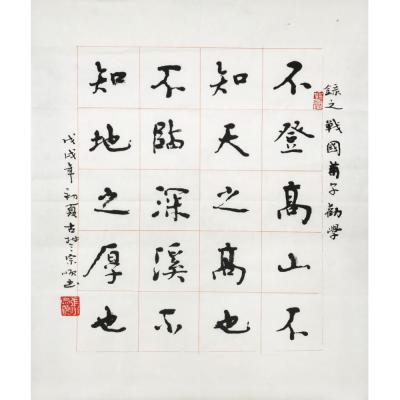 錄之戰國荀子勸學
不登高山不
知天之高也
不臨深溪不
知地之厚也
戊戌年初夏古宗